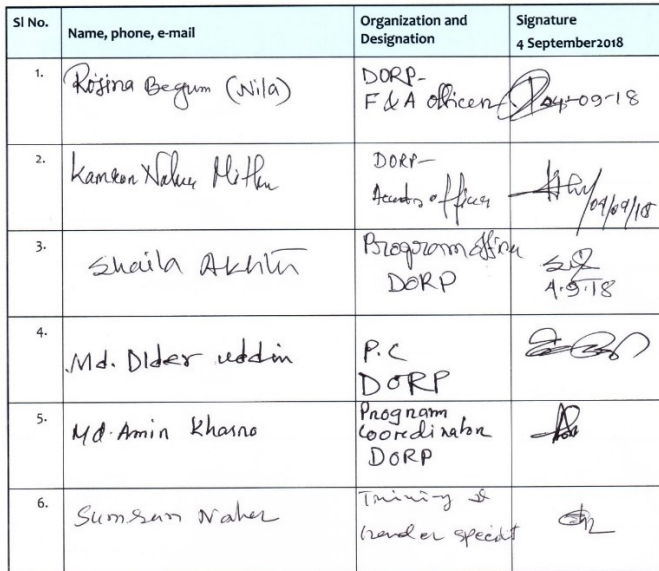 Sl No.
Name, phone, e-mail
Organization and
Designation
Signature
4 September2018
1.
Rosina Begum (Nila)
DORP-
F & A officer
04-09-18
2.
Kamrun Naher
DORP-
Accounts officer
04/09/18
3.
Shaila Akhter
Program officer
DORP
4.9.18
4.
Md. Dlder uddin
P.C
DORP
5.
Md. Amin Khasro
Program
Coordinator
DORP
6.
Sumsun Naher
Training &
Gender